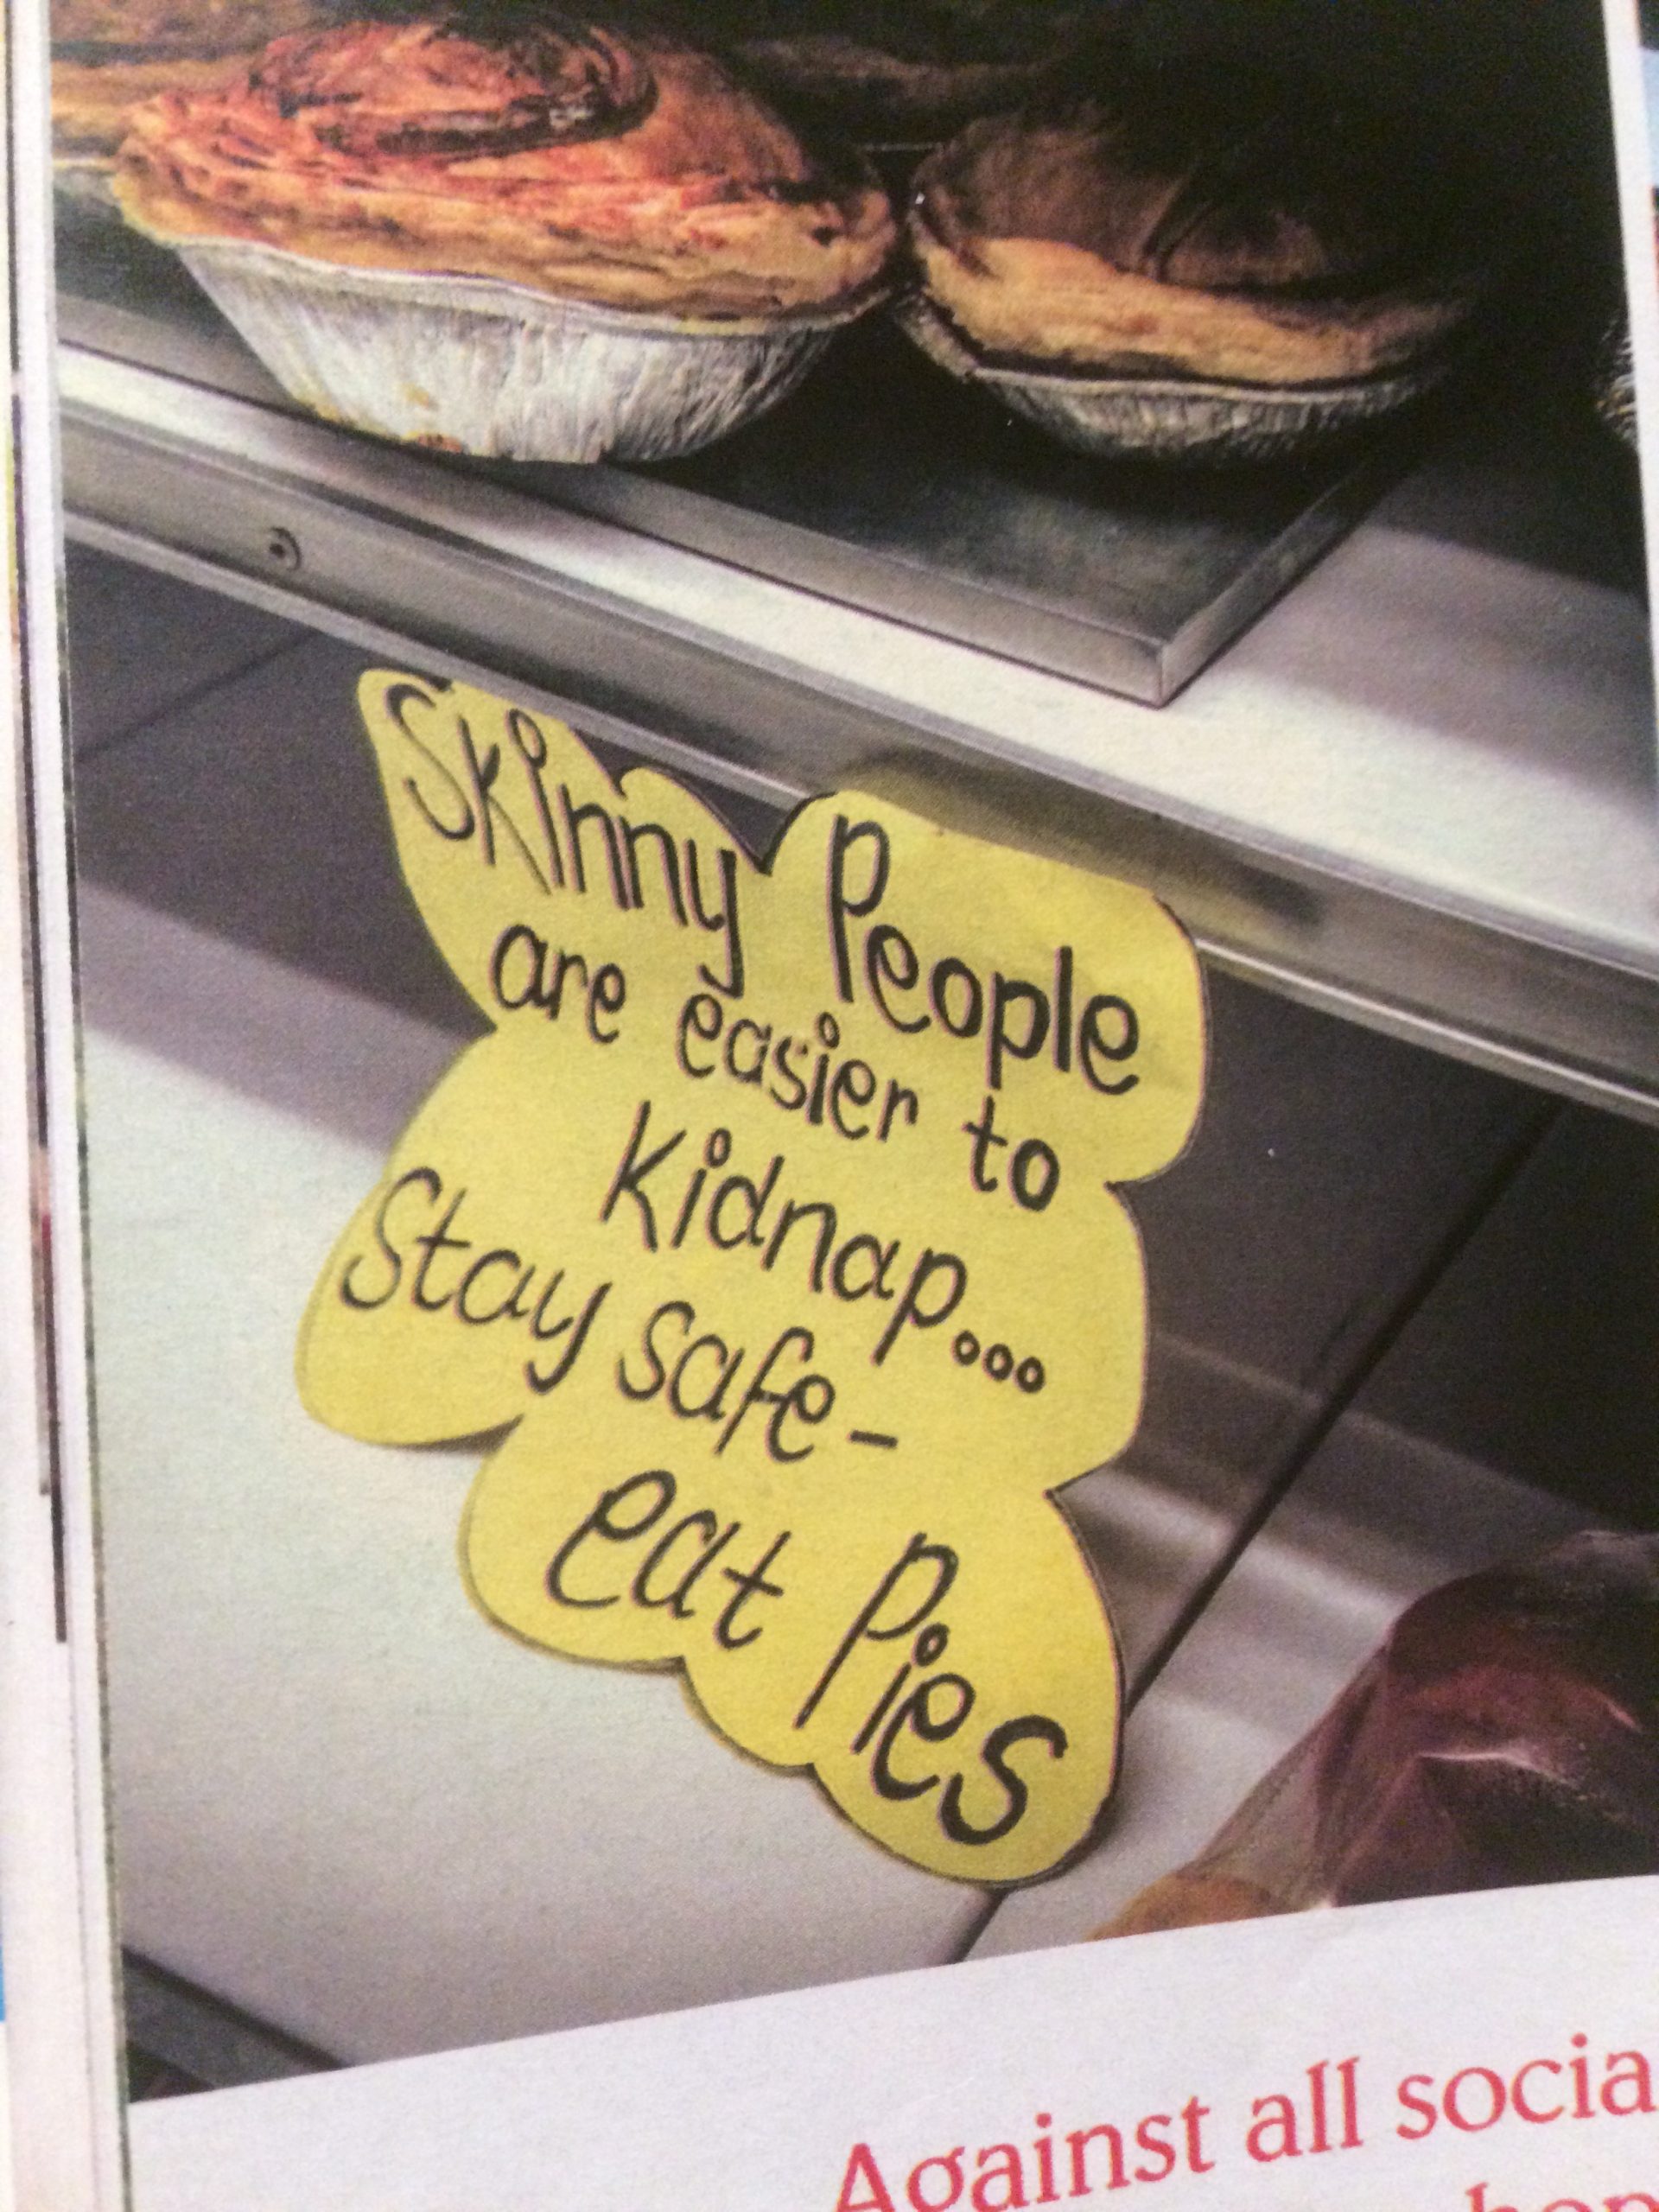 Skinny People
are easier to
Kidnap...
Stay safe-
eat Pies
Against all